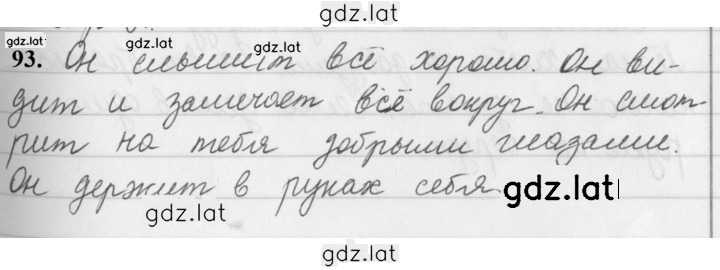 gdz.lat
gdz.lat
gdz.lat
93. Он слышит всё хорошо. Он ви-
дит и замечает всё вокруг. Он смот-
рит на тебя добрыми глазами.
Он держит в руках себя.
gdz.lat
gdz.lat
gdz.lat